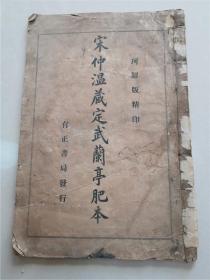 珂羅版精印
宋仲溫藏定武蘭亭肥本
有正書局發行